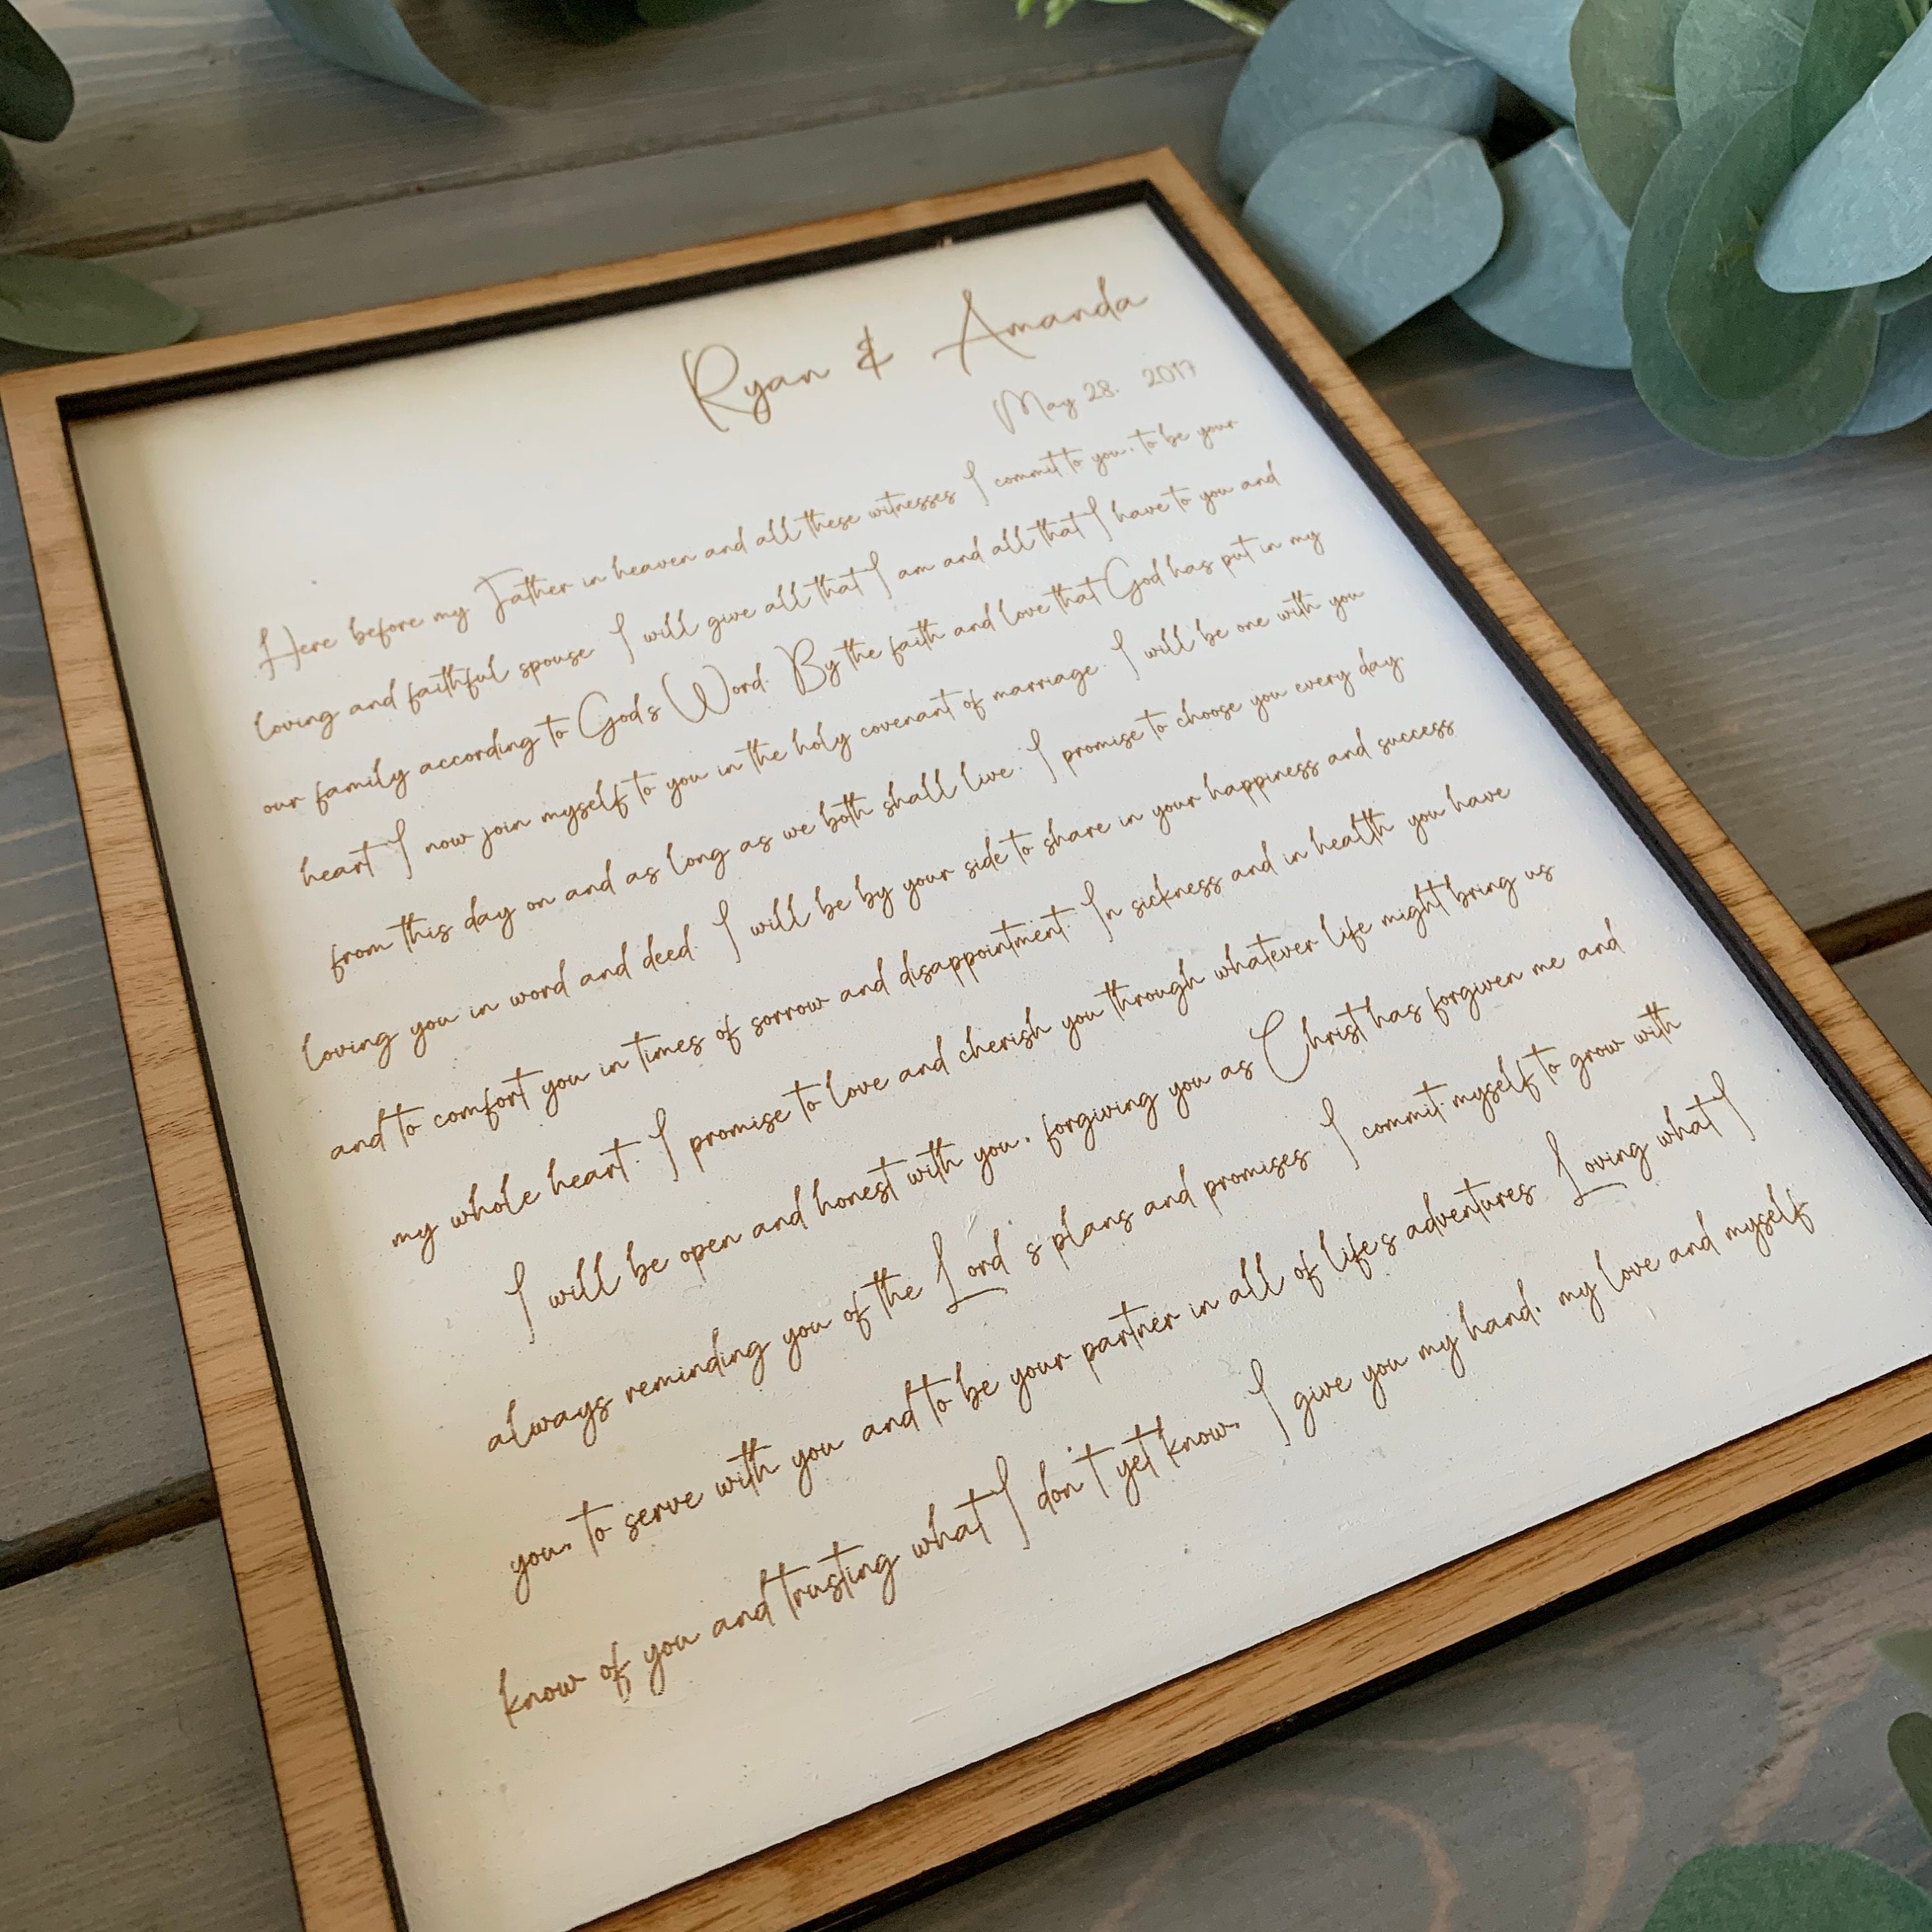 Ryan & Amanda
May 28. 2017
Here before my Father in heaven and all these witnesses I commit to you, to be your
loving and faithful spouse. I will give all that I am and all that I have to you and
our family according to God's Word. By the faith and love that God has put in my
heart I now join myself to you in the holy covenant of marriage. I will be one with you
from this day on and as long as we both shall live. I promise to choose you every day,
loving you in word and deed. I will be by your side to share in your happiness and success
and to comfort you in times of sorrow and disappointment. In sickness and in health you have
my whole heart. I promise to love and cherish you through whatever life might bring us
I will be open and honest with you, forgiving you as Christ has forgiven me and
always reminding you of the Lord's plans and promises. I commit myself to grow with
you, to serve with you and to be your partner in all of life's adventures. Loving what I
know of you and trusting what I don't yet know, I give you my hand, my love and myself